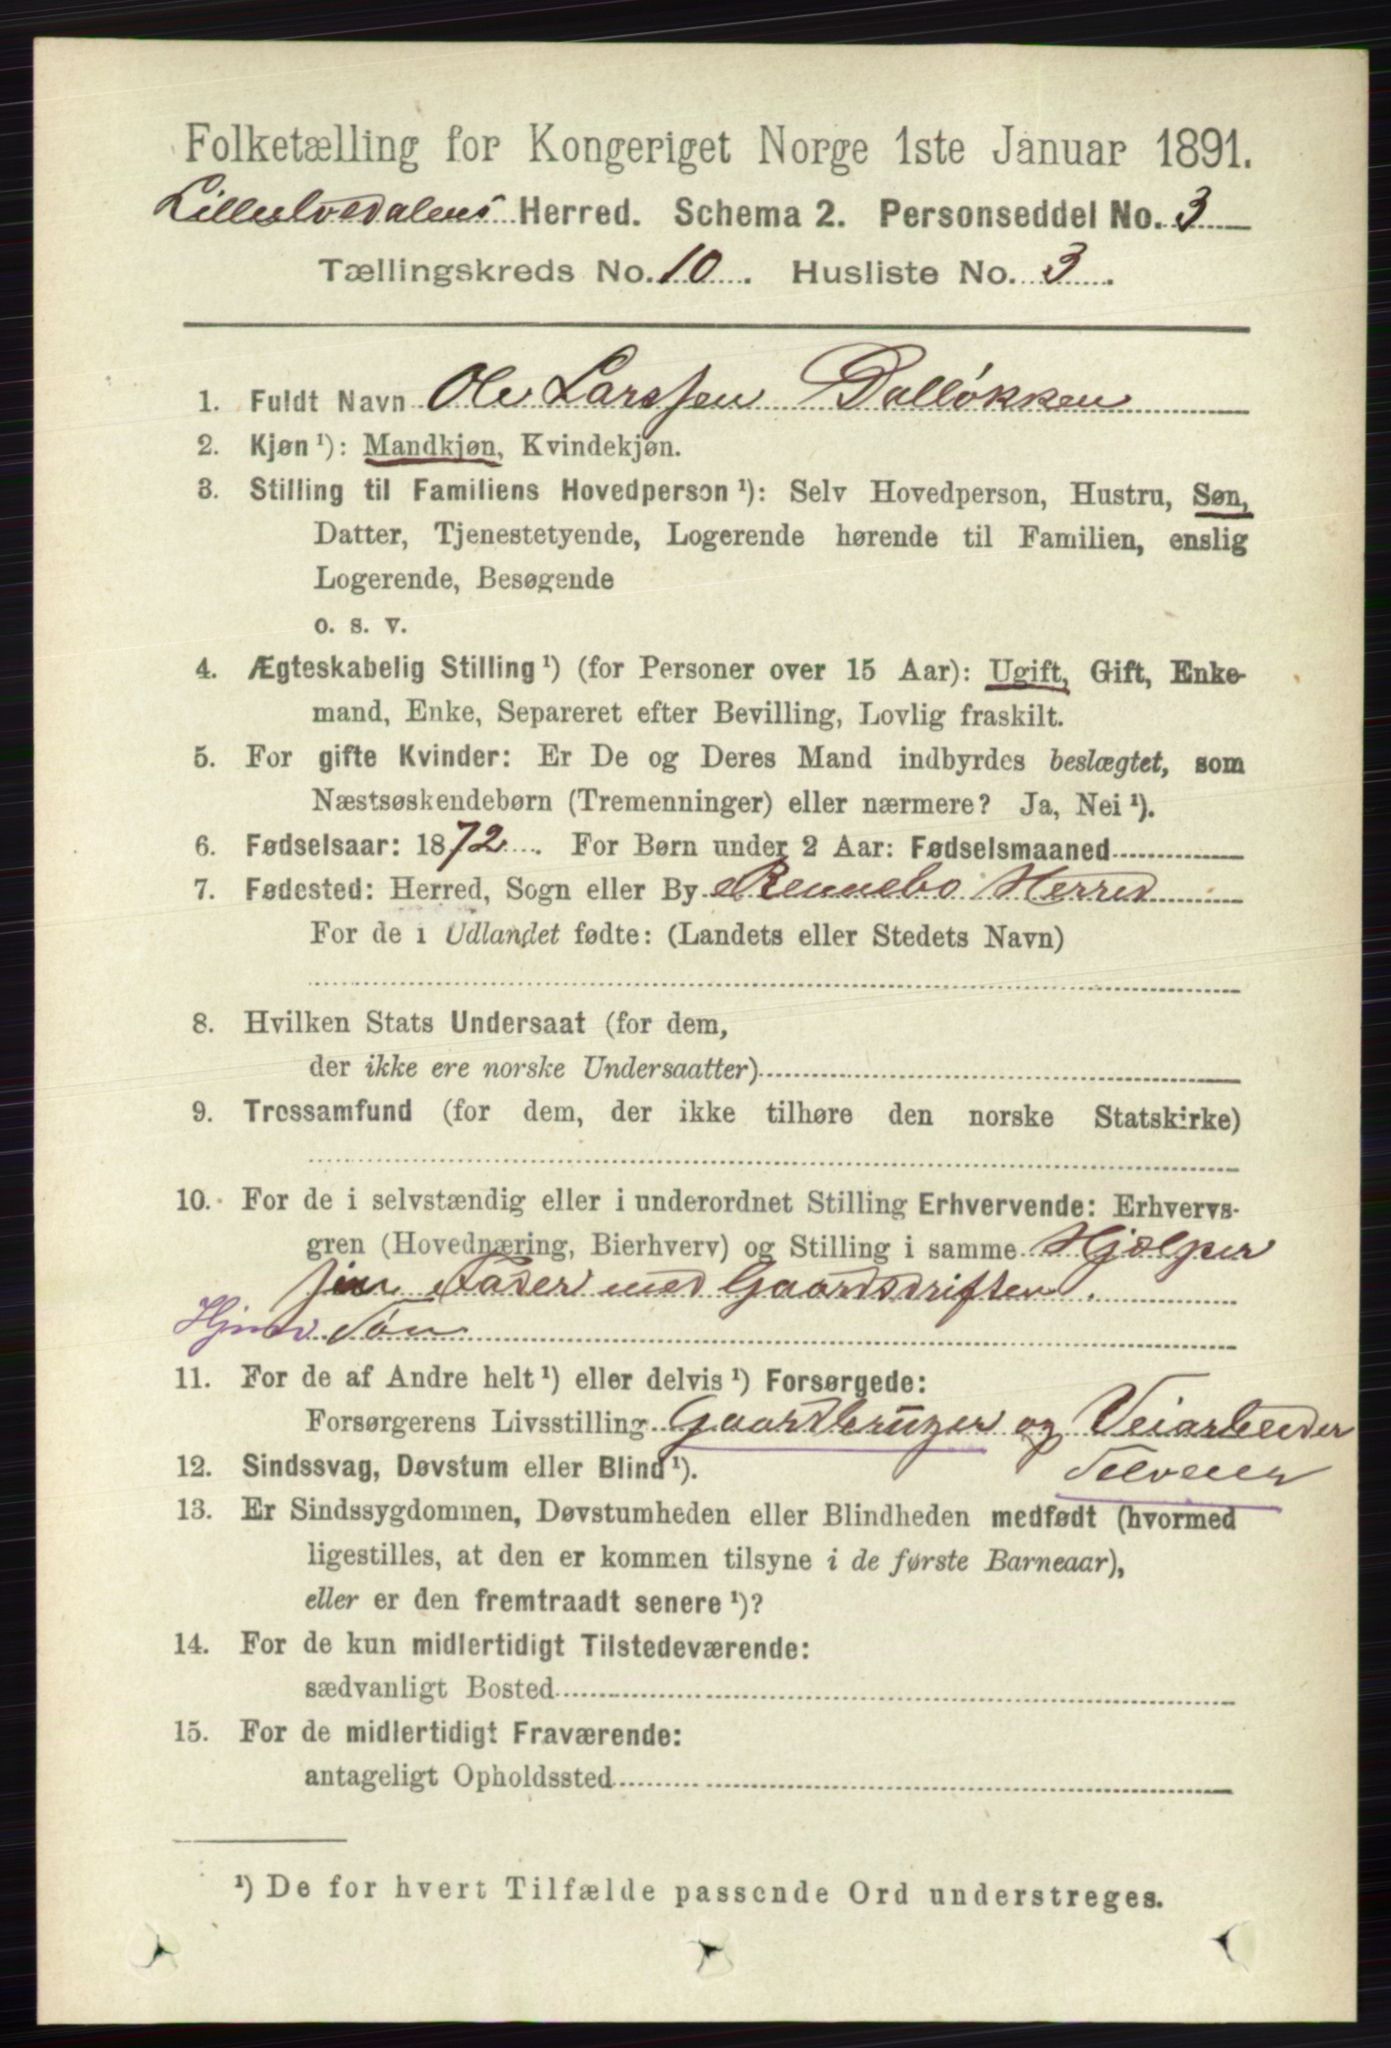 Folketælling for Kongeriget Norge 1ste Januar 1891.
Lilleelvedalens Herred. Schema 2. Personseddel No. 3
Tællingskreds No. 10. Husliste No. 3.
1. Fuldt Navn Ole Larssen Dalløkken
2. Kjøn ¹): Mandkjøn, Kvindekjøn.
3. Stilling til Familiens Hovedperson ¹): Selv Hovedperson, Hustru, Søn,
Datter, Tjenestetyende, Logerende hørende til Familien, enslig
Logerende, Besøgende
o. s. v.
4. Ægteskabelig Stilling ¹) (for Personer over 15 Aar): Ugift, Gift, Enke-
mand, Enke, Separeret efter Bevilling, Lovlig fraskilt.
5. For gifte Kvinder: Er De og Deres Mand indbyrdes beslægtet, som
Næstsøskendebørn (Tremenninger) eller nærmere? Ja, Nei ¹).
6. Fødselsaar: 1872. For Børn under 2 Aar: Fødselsmaaned
7. Fødested: Herred, Sogn eller By Rennebo Herred
For de i Udlandet fødte: (Landets eller Stedets Navn)
8. Hvilken Stats Undersaat (for dem,
der ikke ere norske Undersaatter)
9. Trossamfund (for dem, der ikke tilhøre den norske Statskirke)
10. For de i selvstændig eller i underordnet Stilling Erhvervende: Erhvervs-
gren (Hovednæring, Bierhverv) og Stilling i samme Hjælper
sin Fader med Gaardsdriften.
Hjmv Søn
11. For de af Andre helt ¹) eller delvis ¹) Forsørgede:
Forsørgerens Livsstilling Gaardbruger og Veiarbeider
12. Sindssvag, Døvstum eller Blind ¹). Selveier
13. Er Sindssygdommen, Døvstumheden eller Blindheden medfødt (hvormed
ligestilles, at den er kommen tilsyne i de første Barneaar),
eller er den fremtraadt senere ¹)?
14. For de kun midlertidigt Tilstedeværende:
sædvanligt Bosted
15. For de midlertidigt Fraværende:
antageligt Opholdssted
¹) De for hvert Tilfælde passende Ord understreges.